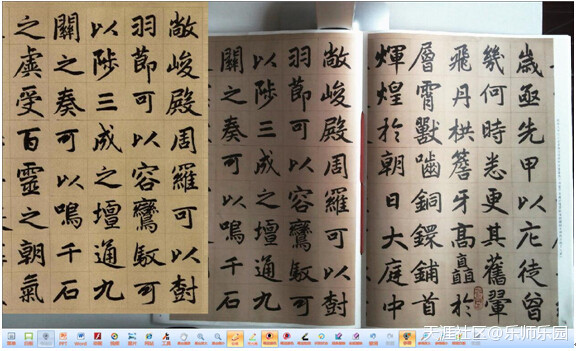 歳亟先甲以庀徒曾
幾何時悉更其舊翬
飛丹栱簷牙高矗於
層霄獸嚙銅鐶鋪首
煇煌於朝日大庭中
敞峻殿周羅可以樹
羽節可以容鸞馭可
以陟三成之壇通九
關之奏可以鳴千石
敞峻殿周羅可以樹
羽節可以容鸞馭可
以陟三成之壇通九
關之奏可以鳴千石
之虡受百靈之朝氣
天涯社区@乐师乐园